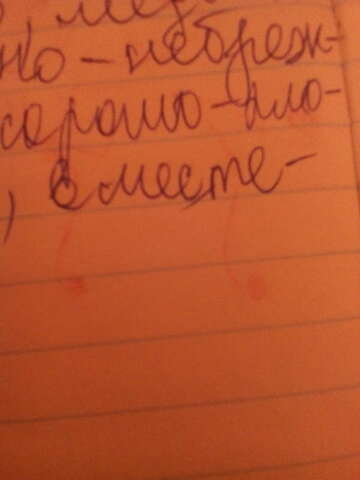 мед
но - небреж-
хорошо - пло-
, вместе -